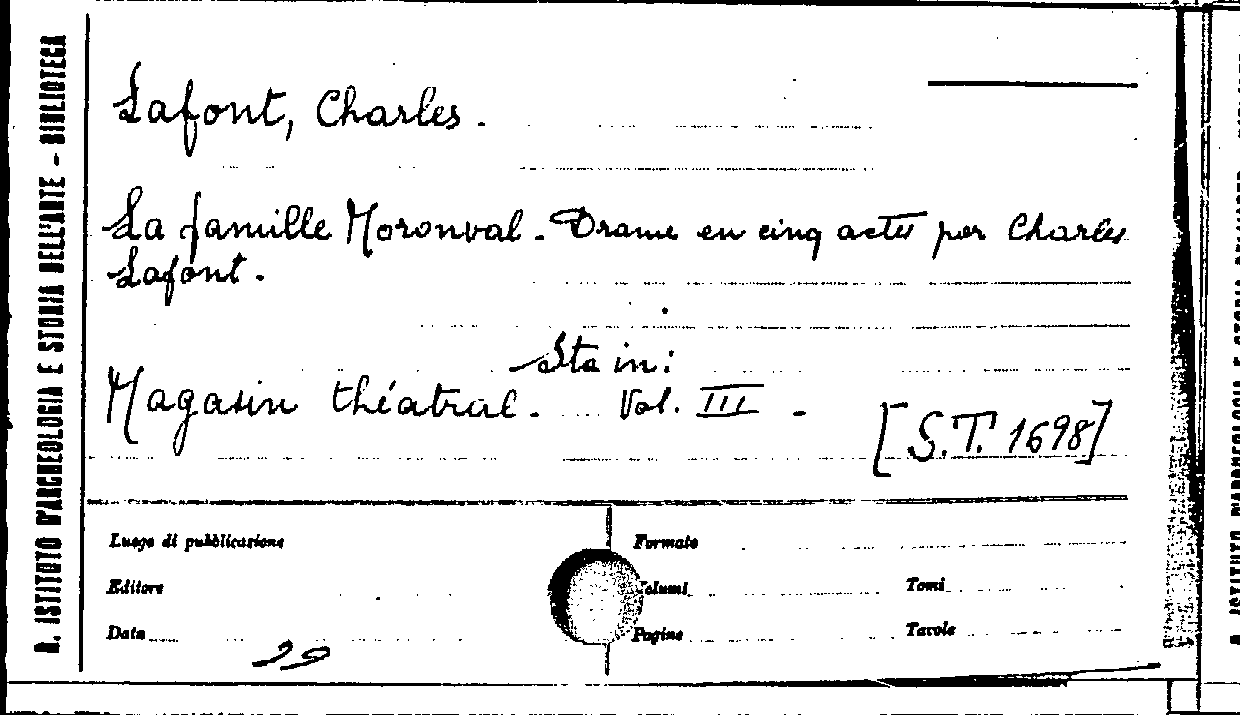 R. ISTITUTO D'ARCHEOLOGIA E STORIA DELL'ARTE - BIBLIOTECA
Lafont, Charles.
La famille Moronval. Drame en cinq actes par Charles
Lafont.
Sta in:
Magasin théatral. Vol. III -
[S.T. 1698]
Luogo di pubblicazione
Formato
Editore
Volumi
Tomi
Data
Pagine
Tavole
29